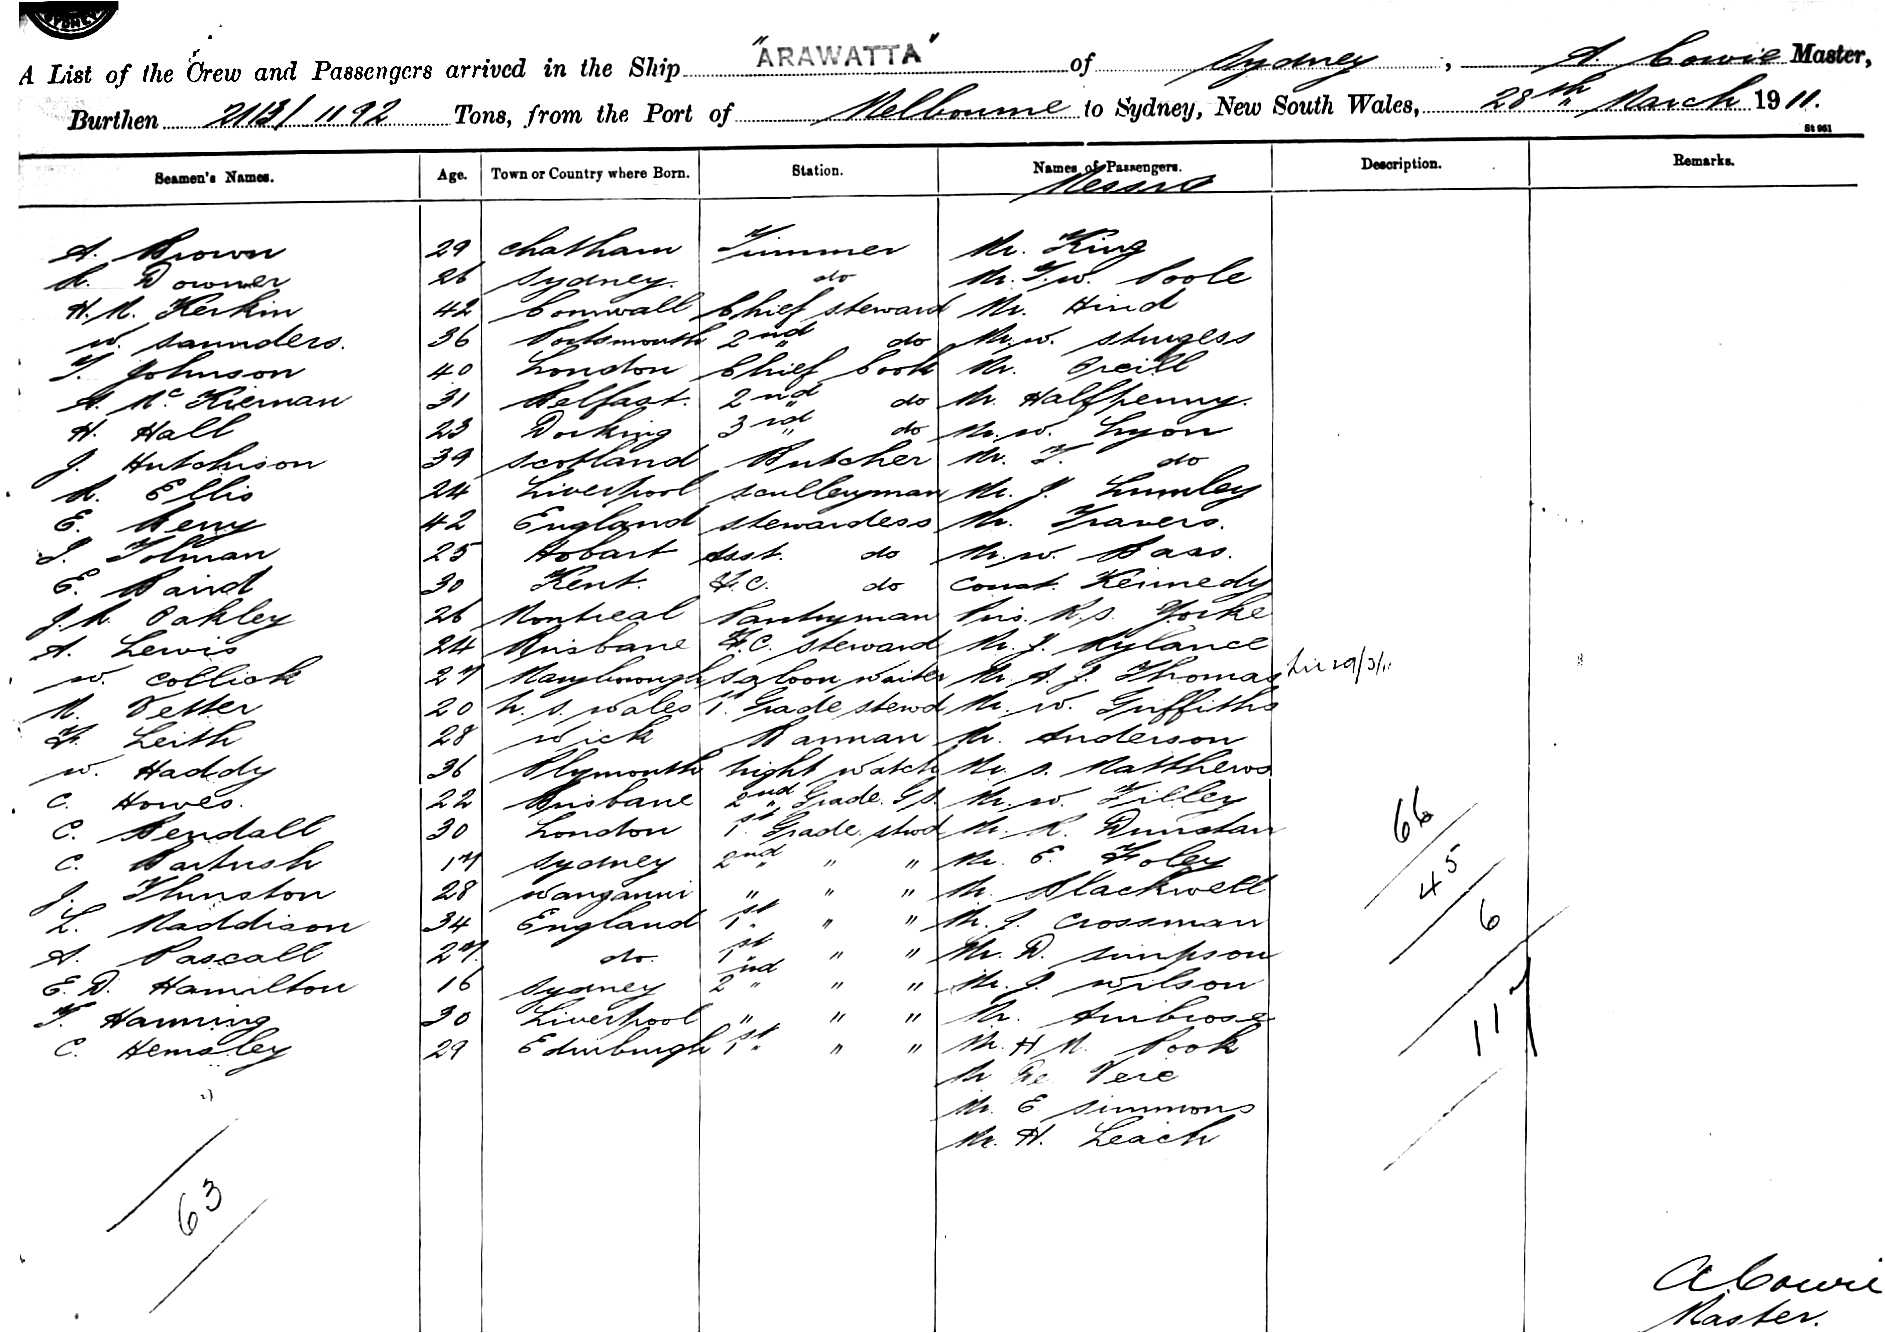 SYDNEY
A List of the Crew and Passengers arrived in the Ship "ARAWATTA" of Sydney, A. Cowie Master,
Burthen 2113/1192 Tons, from the Port of Melbourne to Sydney, New South Wales, 28th March 1911.
St 961
Seamen's Names. Age. Town or Country where Born. Station. Names of Passengers. Description. Remarks.
Messrs
A. Brown 29 Chatham Trimmer Mr. King
R. Downer 26 Sydney. do Mr. T.W. Poole
H.M. Kerkin 42 Cornwall Chief Steward Mr. Hind
W. Saunders. 36 Portsmouth 2nd do Mr. W. Sturgess
T. Johnson 40 London Chief Cook Mr.
A. McKiernan 31 Belfast. 2nd do Mr. Halfpenny.
H. Hall 23 Dorking 3rd do Mr. W. Lyon
J. Hutchison 39 Scotland Butcher Mr. T. do
R. Ellis 24 Liverpool Sculleryman Mr. J. Lumley
E. Berry 42 England Stewardess Mr. Travers.
I. Tolman 25 Hobart Asst. do Mr. W. Bass.
E. Baird 30 Kent. F.C. do Const. Kennedy
J.R. Oakley 26 Montreal Pantryman Pris. R.S. Yorke
A. Lewis 24 Brisbane F.C. Steward Mr. J. Rylance
W. Collick 27 Maryborough Saloon Waiter Mr. A. J. Thomas
M. Vetter 20 N.S. Wales 1st Grade Stewd Mr. W. Griffiths
F. Leith 28 Wick Barman Mr. Anderson
W. Haddy 36 Plymouth Night Watch Mr. S. Matthews
C. Howes. 22 Brisbane 2nd Grade G.S. Mr. W. Tilley
C. Bendall 30 London 1st Grade Stwd Mr. R. Dunstan
C. Bartush 17 Sydney 2nd " " Mr. E. Foley
J. Thurston 28 Wanganui " " " Mr. Blackwell
L. Maddison 34 England 1st " " Mr. J. Crossman
A. Pascall 27. do. 1st " " Mr. D. Simpson
E.D. Hamilton 16 Sydney 2nd " " Mr. J. Wilson
T. Hanning 30 Liverpool " " " Mr. Ambrose
C. Hemsley 29 Edinburgh 1st " " Mr. H M. Pook
Mr De Vere
Mr. E Simmons
Mr. H. Leach
66
45
6
117
63
A Cowie
Master.